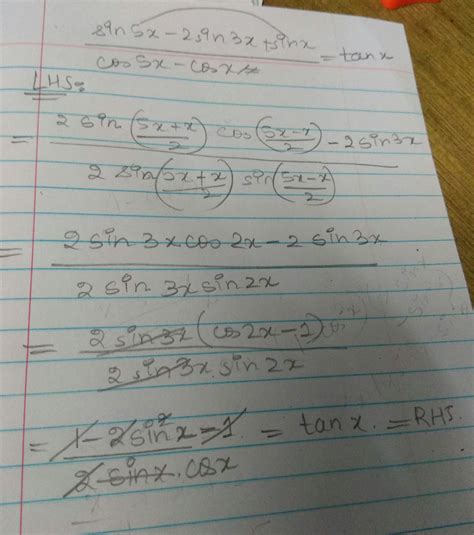 sin5x - 2sin3x + sinx / cos5x - cosx = tanx
LHS:
= 2 sin (5x+x / 2) cos (5x-x / 2) - 2sin3x / 2 sin (5x+x / 2) sin (5x-x / 2)
= 2 sin 3x cos 2x - 2 sin 3x / 2 sin 3x sin 2x
= 2 sin 3x (cos 2x - 1) / 2 sin 3x . sin 2x
= 1 - 2 sin²x - 1 / 2 sinx . cosx = tanx. = RHS.